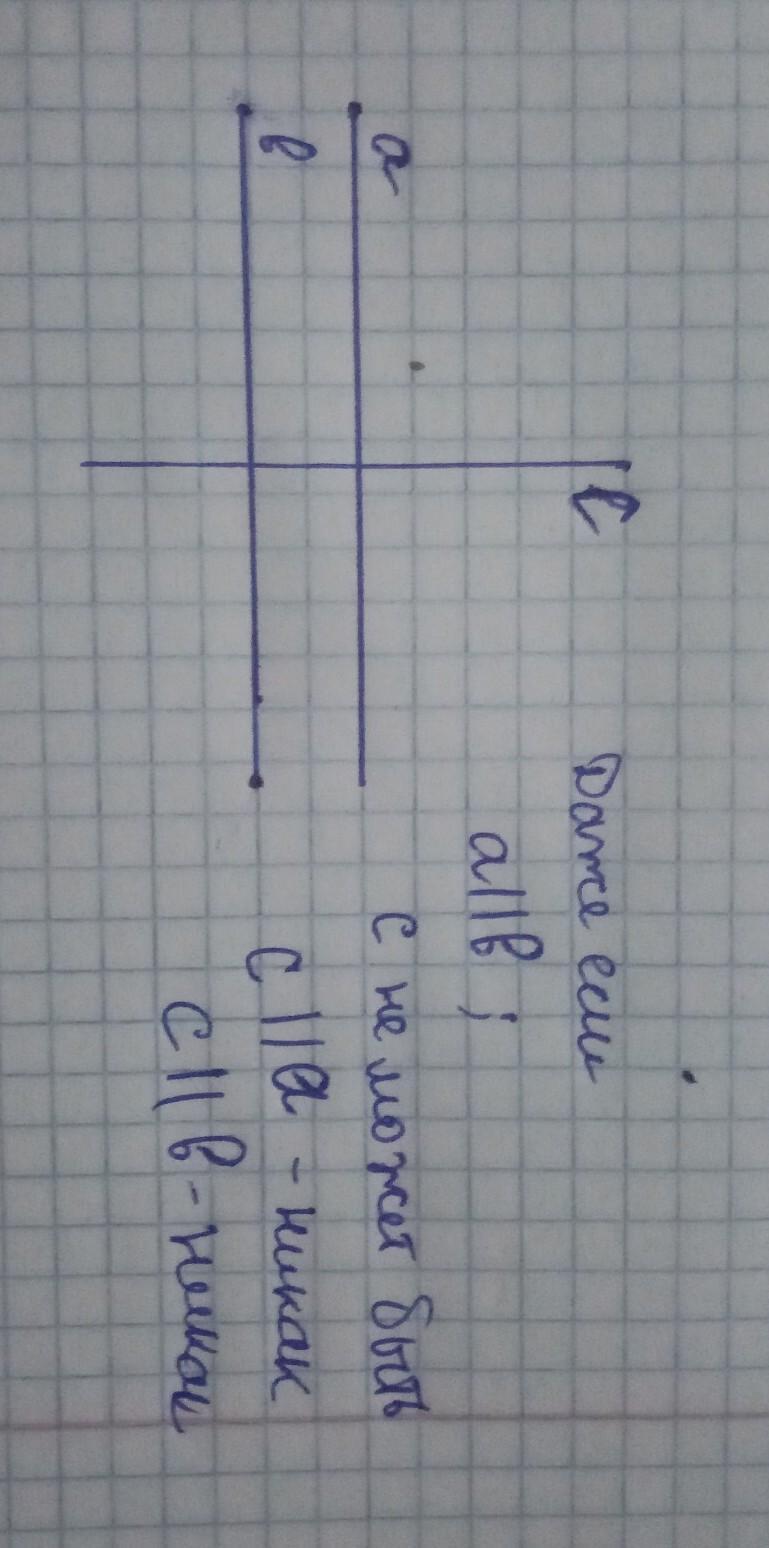 a
в
c
Даже если
a||в ;
с не может быть
c || a - никак
c || в - никак